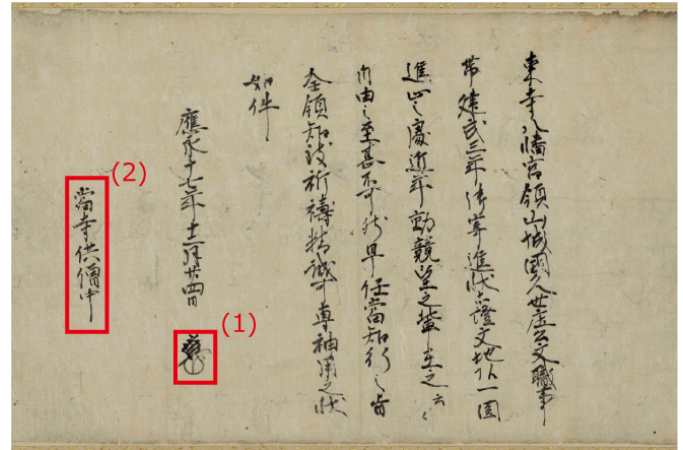 東寺八幡宮領山城國久世庄公文職事
帯建武三年御寄進状以下證文地下一圓
進止之處近年動競望之輩在之云々
自由之至甚不可然早任當知行之旨
全領知致祈祷精誠可専神用之状
如件
應永十七年十二月廿四日
(1)
(2)
當寺供僧中